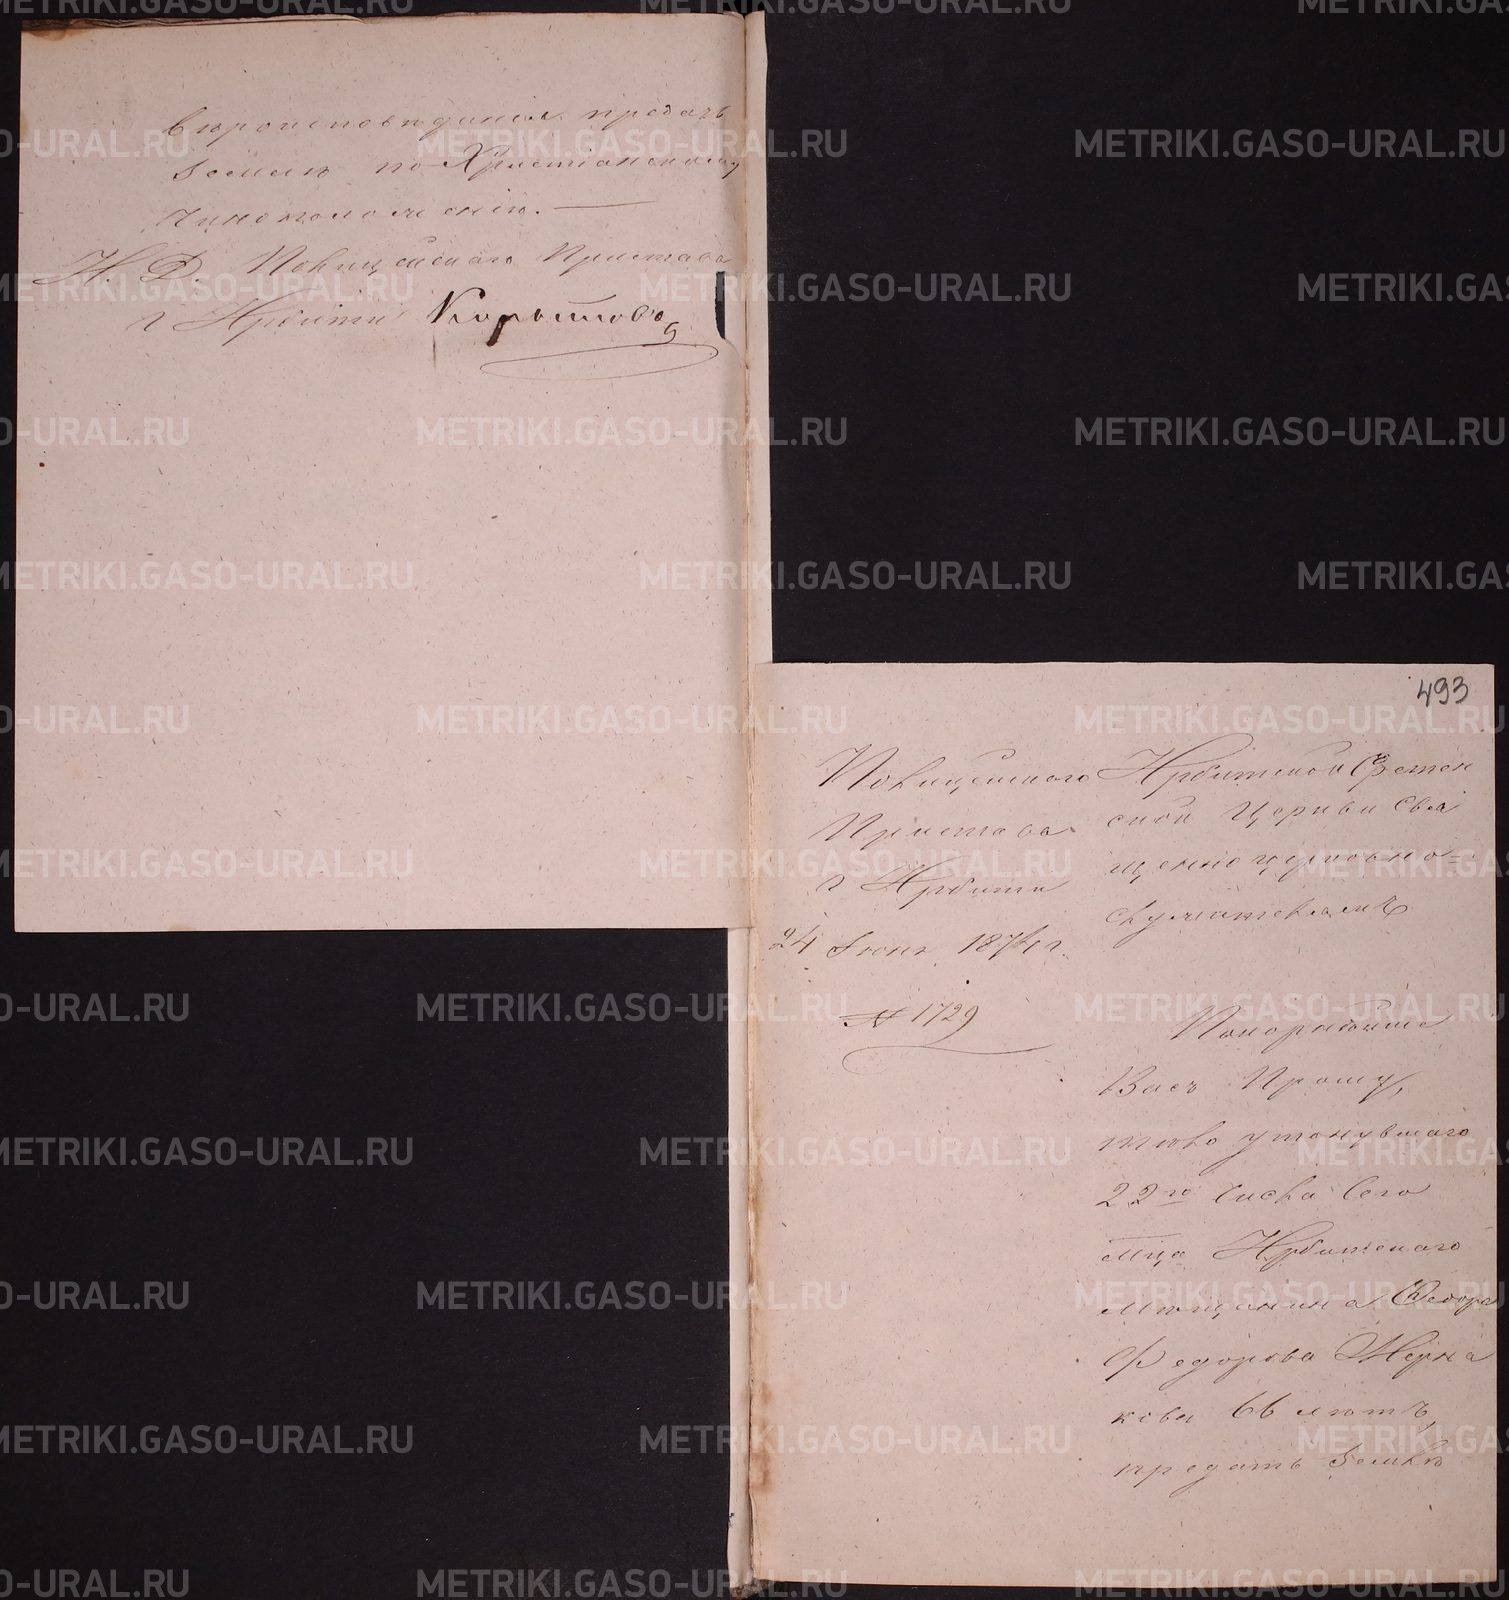 вѣроисповѣданія предать
земли по Христіанскому
чиноположенію.
И. Д. Полицейскаго Пристава
г Ирбити Корытова
493
Полицейскаго
Пристава
г Ирбити
24 Іюня 1874 г.
№ 1729
Ирбитской Сретен
ской Церкви Свя
щенно церковно=
служителямъ
Покорнѣйше
Васъ Прошу,
тѣло утонувшаго
22го числа Сего
мца Ирбитскаго
мѣщанина Федора
Федорова Жерна
кова 66 лѣтъ,
предать землѣ
METRIKI.GASO-URAL.RU